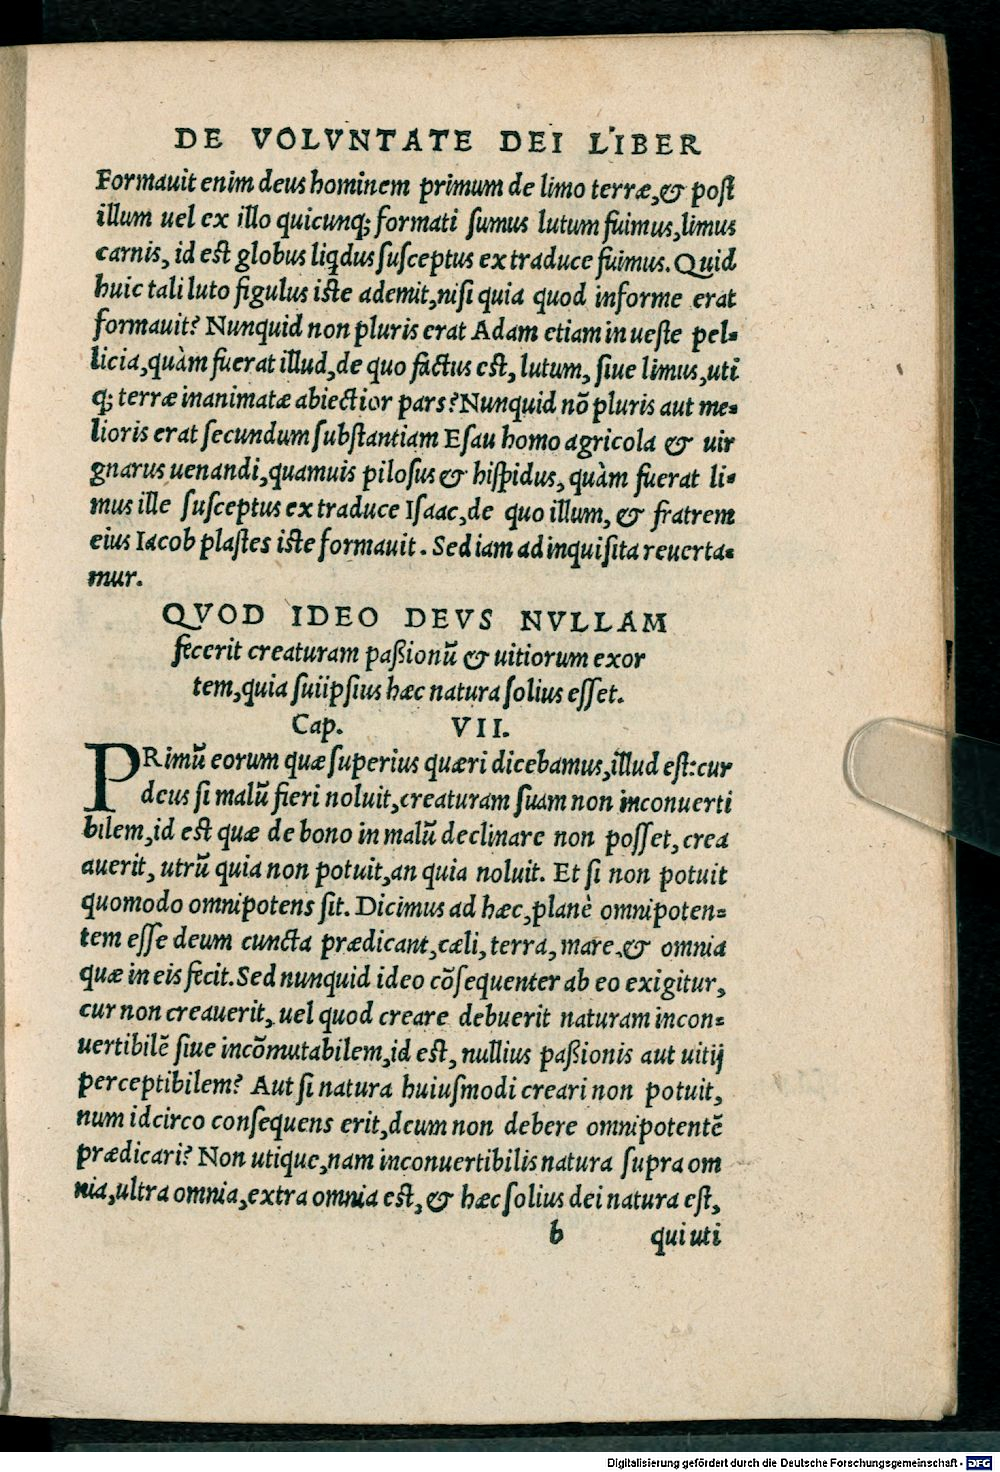 DE VOLVNTATE DEI LIBER
Formauit enim deus hominem primum de limo terræ, & post
illum uel ex illo quicunq; formati sumus lutum fuimus, limus
carnis, id est globus liqdus susceptus ex traduce fuimus. Quid
huic tali luto figulus iste ademit, nisi quia quod informe erat
formauit? Nunquid non pluris erat Adam etiam in ueste pel-
licia, quàm fuerat illud, de quo factus est, lutum, siue limus, uti
q; terræ inanimatæ abiectior pars? Nunquid nõ pluris aut me-
lioris erat secundum substantiam Esau homo agricola & uir
gnarus uenandi, quamuis pilosus & hispidus, quàm fuerat li-
mus ille susceptus ex traduce Isaac, de quo illum, & fratrem
eius Iacob plastes iste formauit. Sed iam ad inquisita reuerta-
mur.
QVOD IDEO DEVS NVLLAM
fecerit creaturam paßionũ & uitiorum exor
tem, quia sui ipsius hæc natura solius esset.
Cap. VII.
PRimũ eorum quæ superius quæri dicebamus, illud est: cur
deus si malũ fieri noluit, creaturam suam non inconuerti
bilem, id est quæ de bono in malũ declinare non posset, crea
auerit, utrũ quia non potuit, an quia noluit. Et si non potuit
quomodo omnipotens sit. Dicimus ad hæc, planè omnipoten-
tem esse deum cuncta prædicant, cæli, terra, mare, & omnia
quæ in eis fecit. Sed nunquid ideo cõsequenter ab eo exigitur,
cur non creauerit, uel quod creare debuerit naturam incon-
uertibilẽ siue incõmutabilem, id est, nullius paßionis aut uitij
perceptibilem? Aut si natura huiusmodi creari non potuit,
num idcirco consequens erit, deum non debere omnipotentẽ
prædicari? Non utique, nam inconuertibilis natura supra om
nia, ultra omnia, extra omnia est, & hæc solius dei natura est,
b qui uti
Digitalisierung gefördert durch die Deutsche Forschungsgemeinschaft - DFG